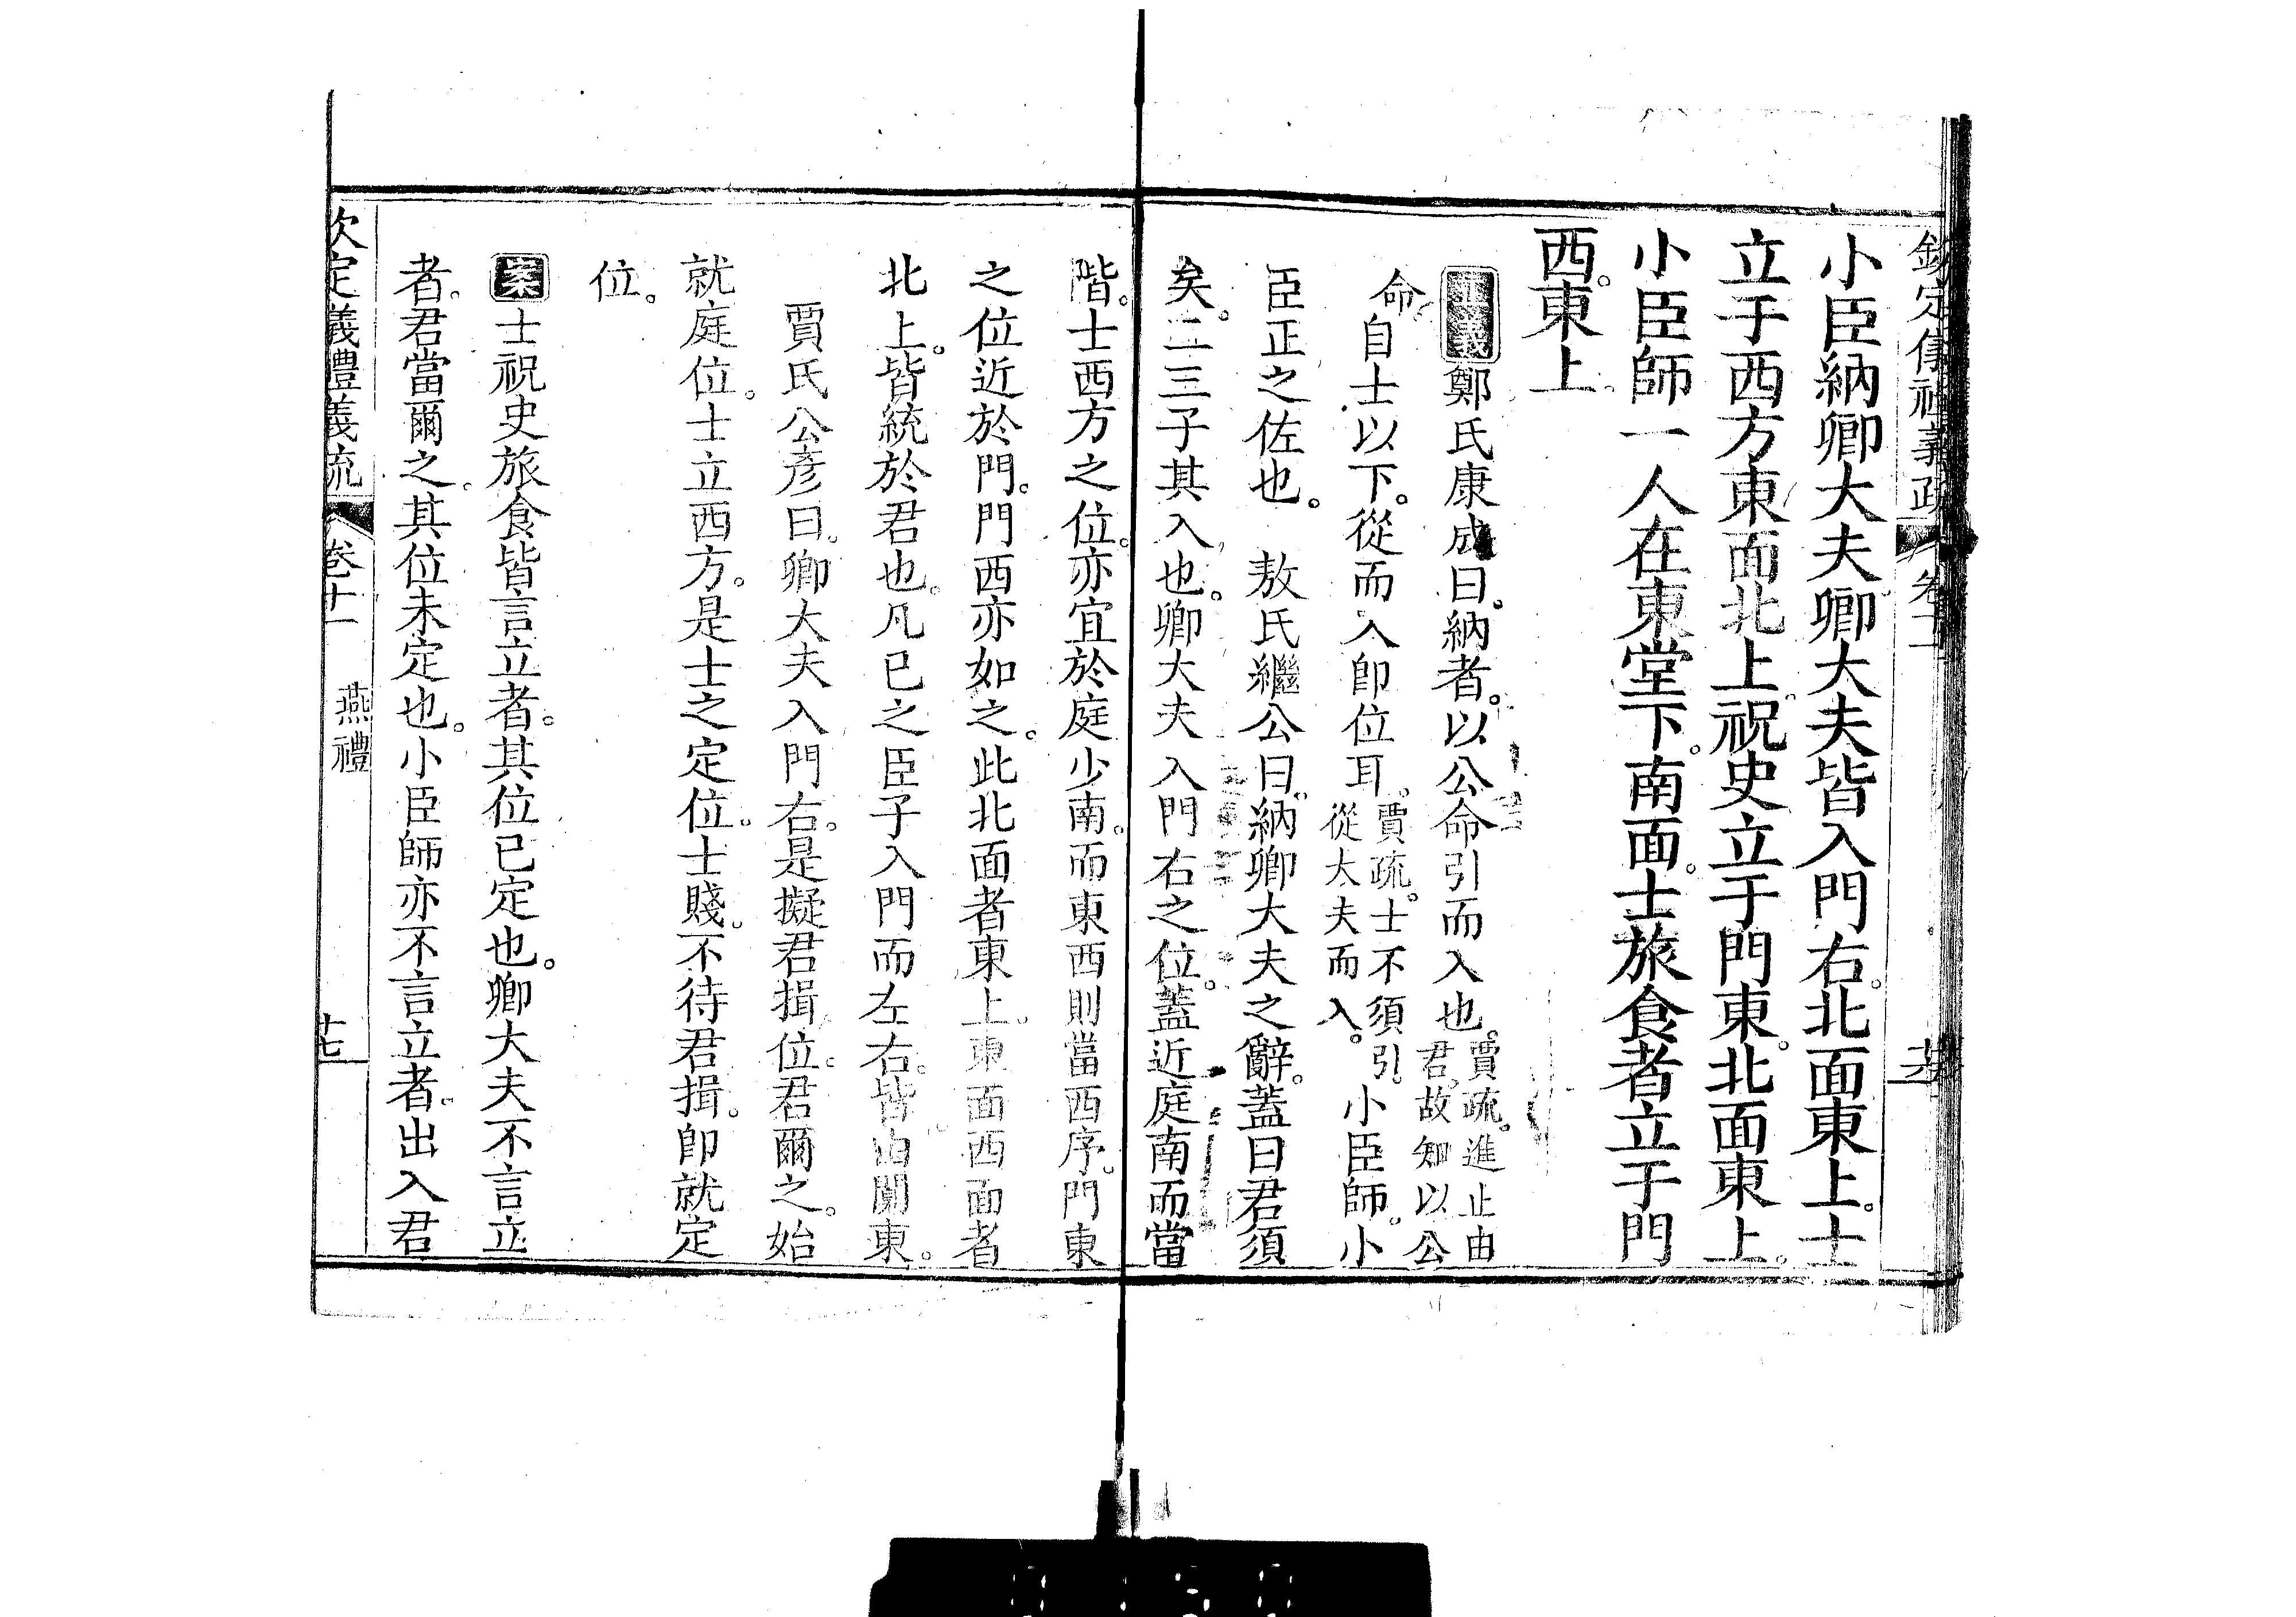 欽定儀禮義疏 卷十一
小臣納卿大夫卿大夫皆入門右。北面東上。士
立于西方東面北上。祝史立于門東。北面東上。
小臣師一人在東堂下。南面。士旅食者立于門
西。東上。
正義鄭氏康成曰。納者。以公命引而入也。賈疏。進止由君。故知以公
命。自士以下。從而入卽位耳。賈疏。士不須引。從大夫而入。小臣師。小
臣正之佐也。 敖氏繼公曰。納卿大夫之辭。蓋曰君須
矣。二三子其入也。卿大夫入門右之位。蓋近庭南而當
階。士西方之位。亦宜於庭少南。而東西則當西序。門東
之位近於門。門西亦如之。此北面者東上。東面西面者
北上。皆統於君也。凡已之臣子入門而左右。皆由闑東。
賈氏公彥曰。卿大夫入門右。是擬君揖位。君爾之。始
就庭位。士立西方。是士之定位。士賤。不待君揖。卽就定
位。
案士祝史旅食皆言立者。其位已定也。卿大夫不言立
者。君當爾之。其位未定也。小臣師亦不言立者。出入君
欽定義禮義疏 卷十一 燕禮 十七